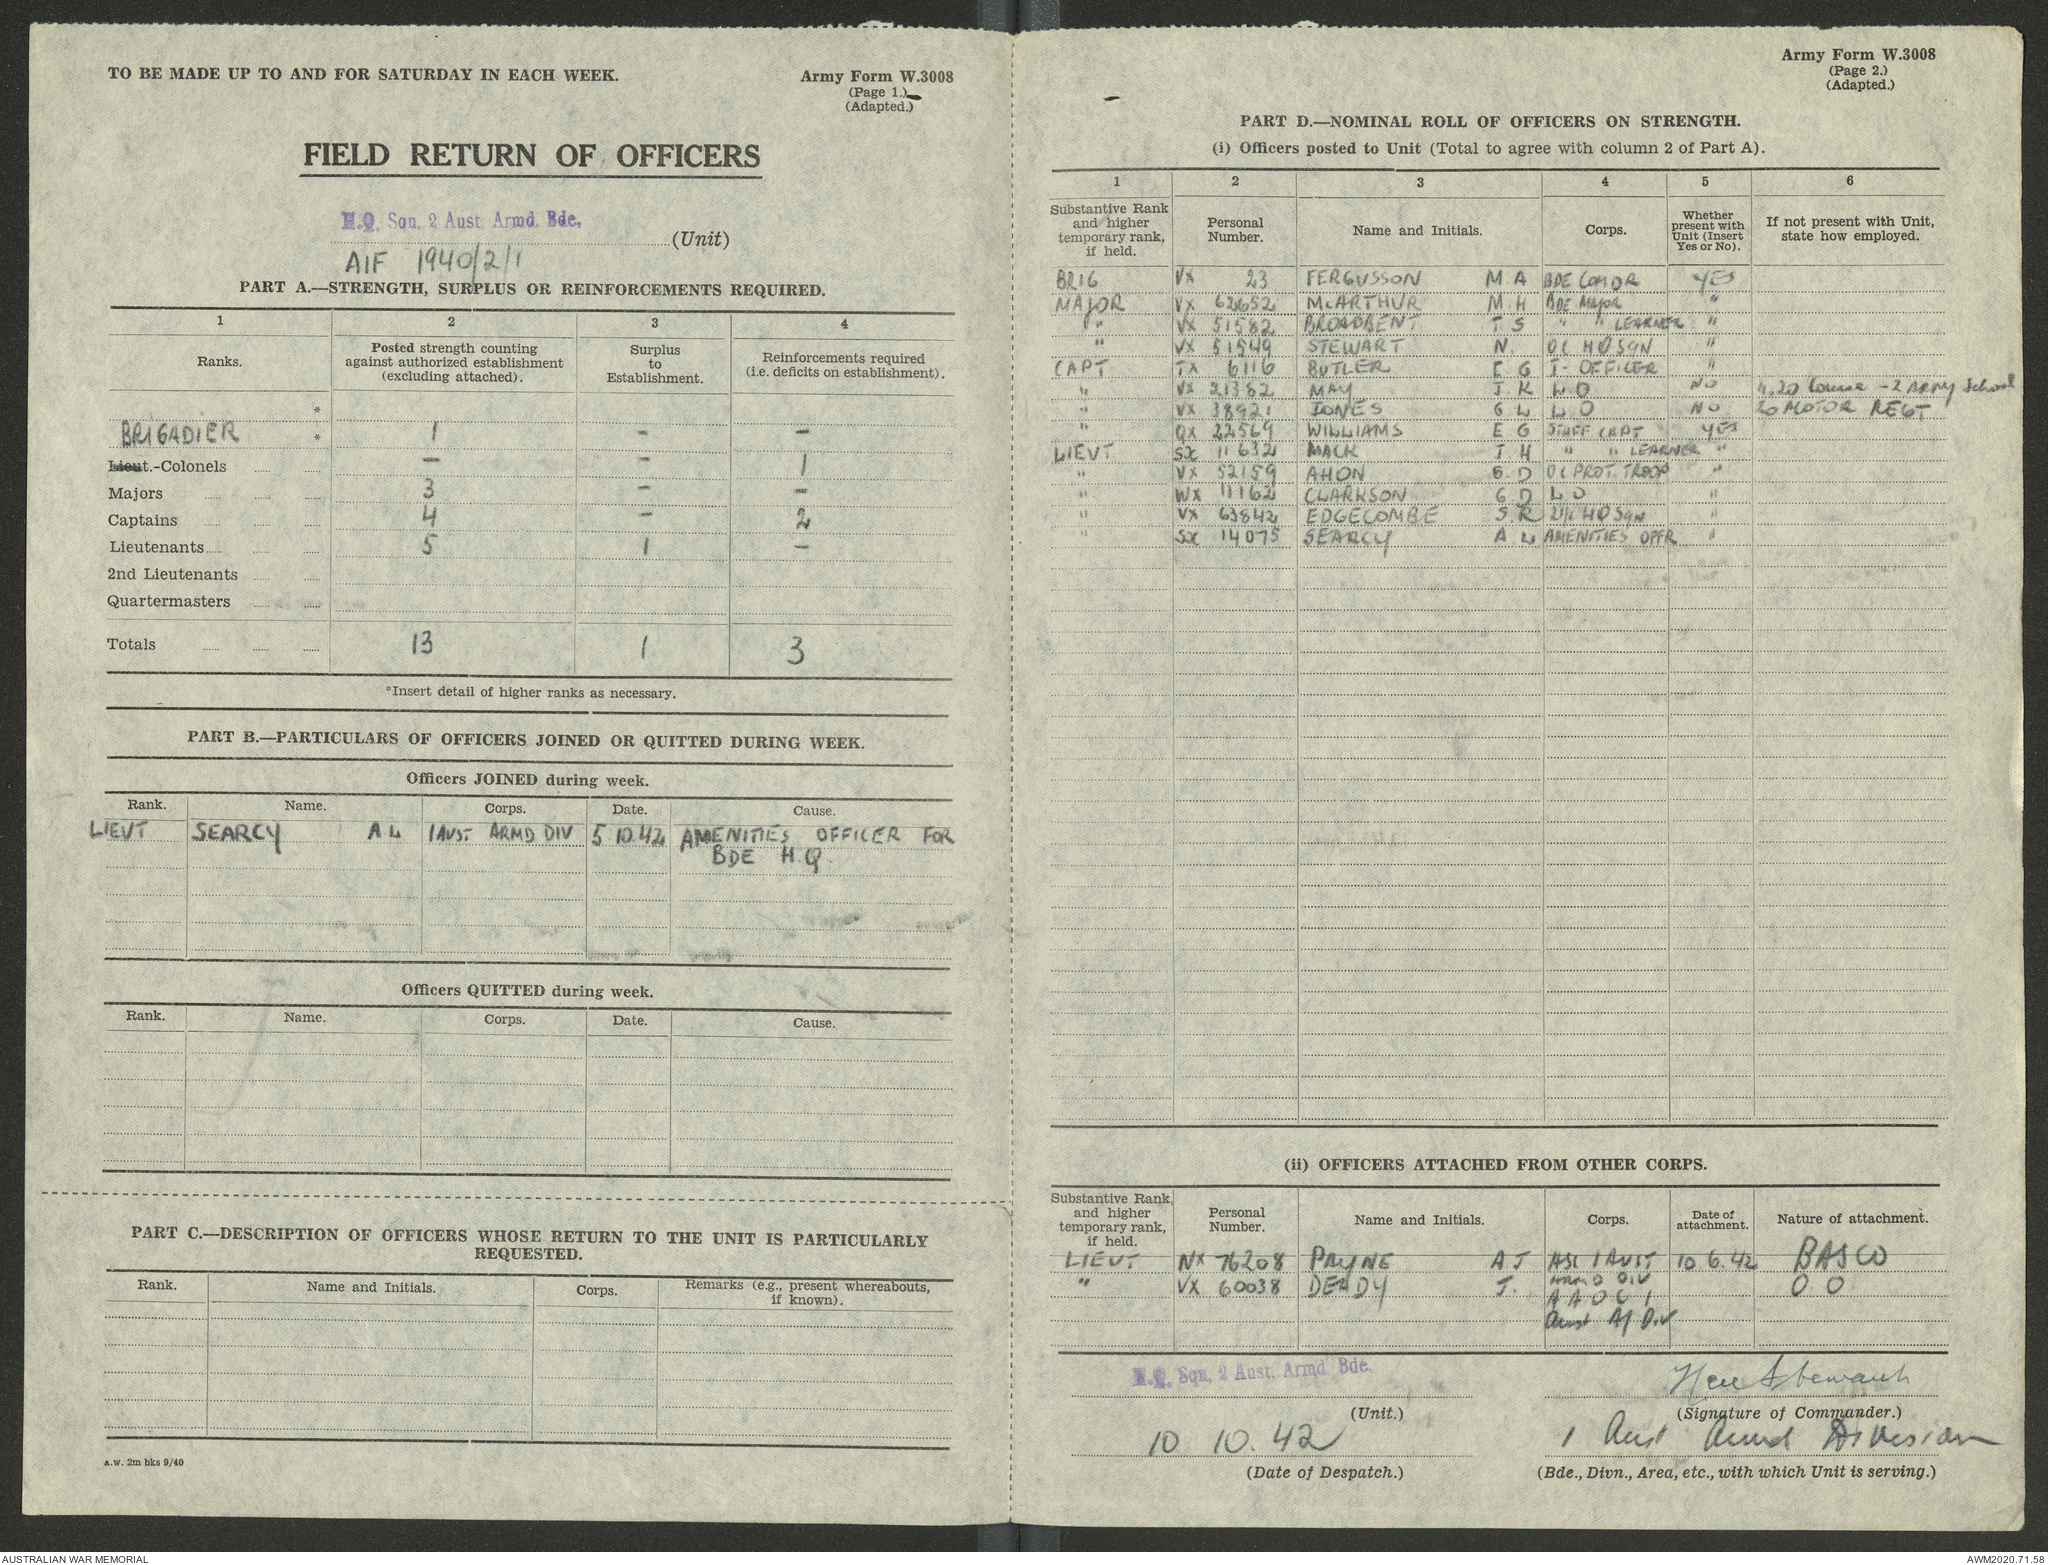 TO BE MADE UP TO AND FOR SATURDAY IN EACH WEEK.
Army Form W.3008
(Page 1.)
(Adapted.)
FIELD RETURN OF OFFICERS
H.Q. Sqn, 2 Aust Armd. Bde, (Unit)
AIF 1940/2/1
PART A.—STRENGTH, SURPLUS OR REINFORCEMENTS REQUIRED.
1 2 3 4
Ranks. Posted strength counting against authorized establishment (excluding attached). Surplus to Establishment. Reinforcements required (i.e. deficits on establishment).
*
BRIGADIER * 1 – –
Lieut.-Colonels – – 1
Majors 3 – –
Captains 4 – 2
Lieutenants 5 1 –
2nd Lieutenants
Quartermasters
Totals 13 1 3
*Insert detail of higher ranks as necessary.
PART B.—PARTICULARS OF OFFICERS JOINED OR QUITTED DURING WEEK.
Officers JOINED during week.
Rank. Name. Corps. Date. Cause.
LIEUT SEARCY A L 1 AUST ARMD DIV 5.10.42 AMENITIES OFFICER FOR
BDE H.Q.
Officers QUITTED during week.
Rank. Name. Corps. Date. Cause.
PART C.—DESCRIPTION OF OFFICERS WHOSE RETURN TO THE UNIT IS PARTICULARLY
REQUESTED.
Rank. Name and Initials. Corps. Remarks (e.g., present whereabouts, if known).
a.w. 2m bks 9/40
Army Form W.3008
(Page 2.)
(Adapted.)
PART D.—NOMINAL ROLL OF OFFICERS ON STRENGTH.
(i) Officers posted to Unit (Total to agree with column 2 of Part A).
1 2 3 4 5 6
Substantive Rank and higher temporary rank, if held. Personal Number. Name and Initials. Corps. Whether present with Unit (Insert Yes or No). If not present with Unit, state how employed.
BRIG VX 23 FERGUSSON M A BDE COMDR YES
MAJOR VX 62652 McARTHUR M H BDE MAJOR "
" VX 51582 BROADBENT T S " " LEARNER "
" VX 51549 STEWART N. OC HQ SQN "
CAPT TX 6116 BUTLER E G I- OFFICER "
" VX 21382 MAY J K L O NO Course - 2 Army School
" VX 38921 JONES G L L O NO 20 MOTOR REGT
" QX 22569 WILLIAMS E G STAFF CAPT YES
LIEUT SX 11632 MACK J H " " LEARNER "
" VX 52159 AHON G. D OC PROT. TROOP "
" WX 11162 CLARKSON G D L O "
" VX 63842 EDGECOMBE S. R 2I/C HQ SQN "
" SX 14075 SEARCY A L AMENITIES OFFR "
(ii) OFFICERS ATTACHED FROM OTHER CORPS.
Substantive Rank, and higher temporary rank, if held. Personal Number. Name and Initials. Corps. Date of attachment. Nature of attachment.
LIEUT NX 76208 PRYNE A J ASC 1 AUST 10.6.42 BASCO
ARMD DIV
" VX 60038 DEADY J. A A O C 1 O.O.
Aust A/ Div
H.Q. Sqn, 2 Aust. Armd. Bde.
(Unit.)
(Signature of Commander.)
10 10. 42
1 Aust Armd Division
(Date of Despatch.)
(Bde., Divn., Area, etc., with which Unit is serving.)
AUSTRALIAN WAR MEMORIAL
AWM2020.71.58